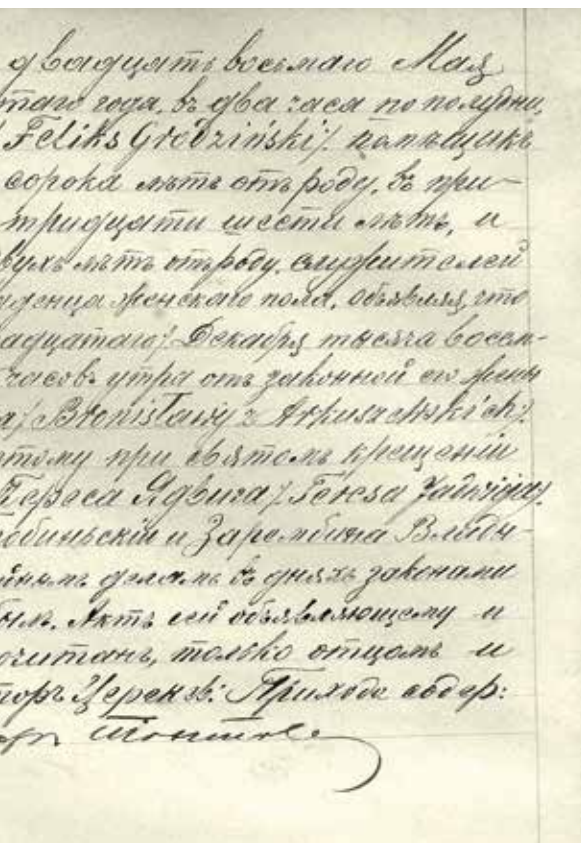 двадцать восьмаго Мая
таго года, въ два часа по полудни,
/Feliks Grodziński/. помѣщикъ
сорока лѣтъ отъ роду, въ при-
тридцати шести лѣтъ, и
двухъ лѣтъ отъ роду, служителей
младенца женскаго пола, объявляя, что
адцатаго/ Декабря тысяча восем-
часовъ утра отъ законной его жены
/Bronisławy z Arkuszewskich/.
этому при святомъ крещеніи
Тереса Ядвига /Teresa Jadwiga/.
Зарембина Влады-
дѣламъ въ дняхъ законами
былъ. Актъ сей объявляющему и
прочитанъ, только отцомъ и
Церек. Прихода содер: